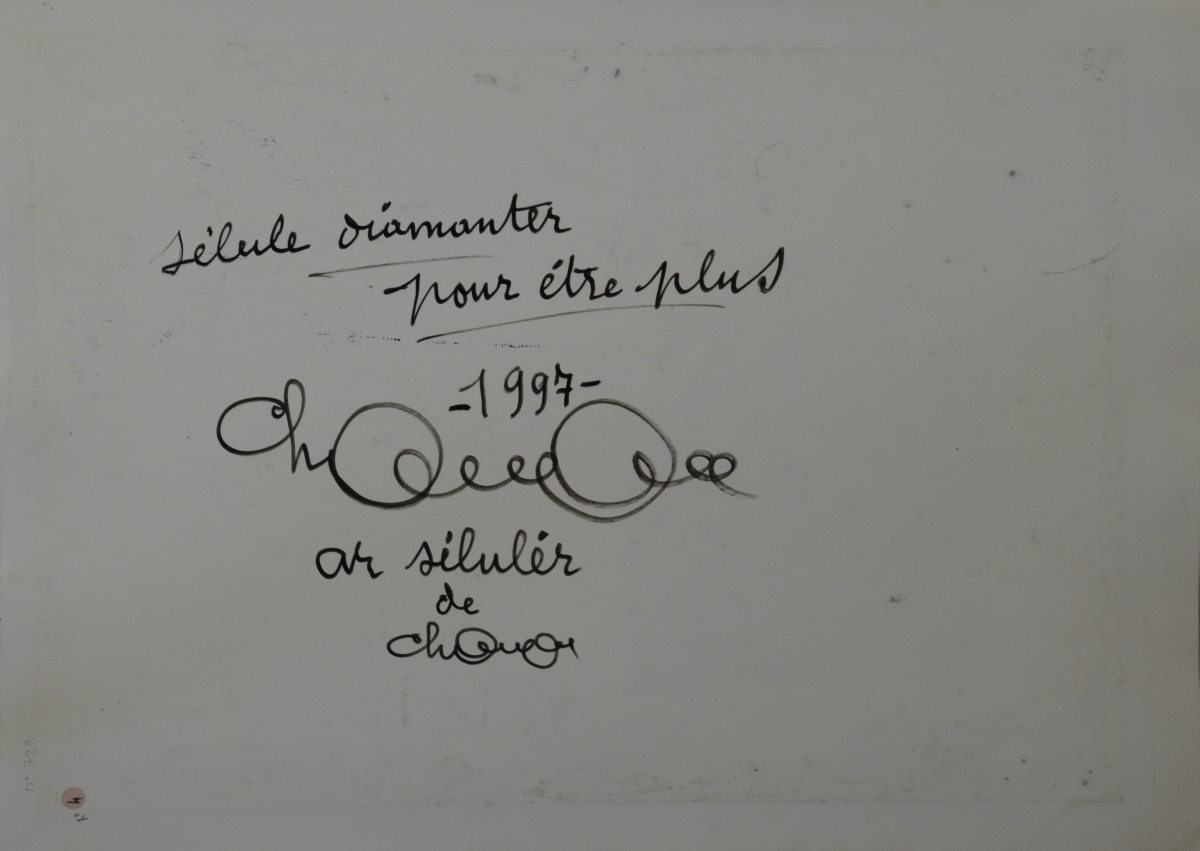 sélule diamanter
pour être plus
-1997-
ar sélulér
de
n° 723